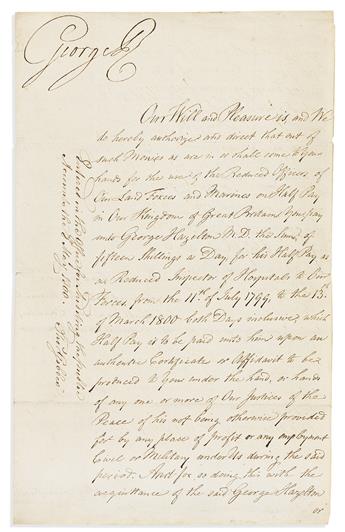 George R
Our Will and Pleasure is, and We
do hereby authorize and direct that out of
such Monies as are in or shall come to Your
hands for the use of the Reduced Officers of
Our Land Forces and Marines on Half Pay
in Our Kingdom of Great Britain You pay
unto George Hazelton M.D. the Sum of
fifteen Shillings a Day for his Half Pay as
a Reduced Inspector of Hospitals to Our
Forces, from the 11th of July 1799 to the 13th
of March 1800 both Days inclusive, which
Half Pay is to be paid unto him upon an
authentic Certificate or Affidavit to be
produced to You under the hand, or hands
of any one or more of Our Justices of the
Peace of his not being otherwise provided
for by any place of profit or any employment
Civil or Military under Us during the said
period. And for so doing this with the
acquittance of the said George Hazelton
or
Entered in the Office for Auditing the public
Accounts the May 1800